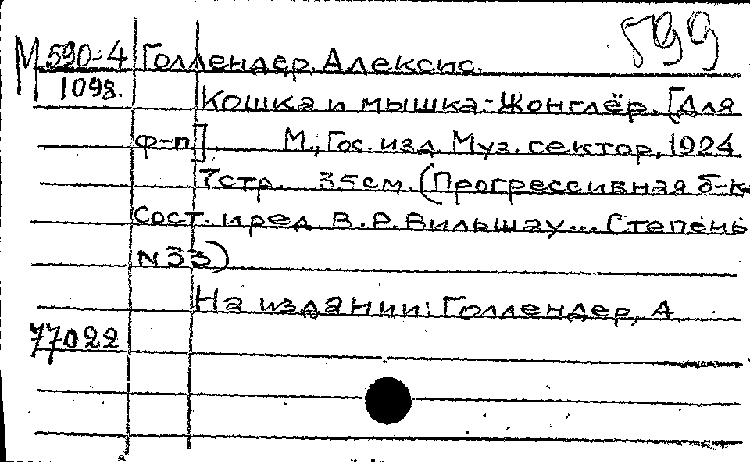 599
М 590-4 Голлендер, Алексис.
1098. Кошка и мышка. Жонглёр. [Для
ф-п] М., Гос. изд. Муз. сектор, 1924
7 стр. 35 см. (Прогрессивная б-к
Сост. и ред. В. Р. Вильшау... Степень
N 33)
На издании: Голлендер, А.
77022